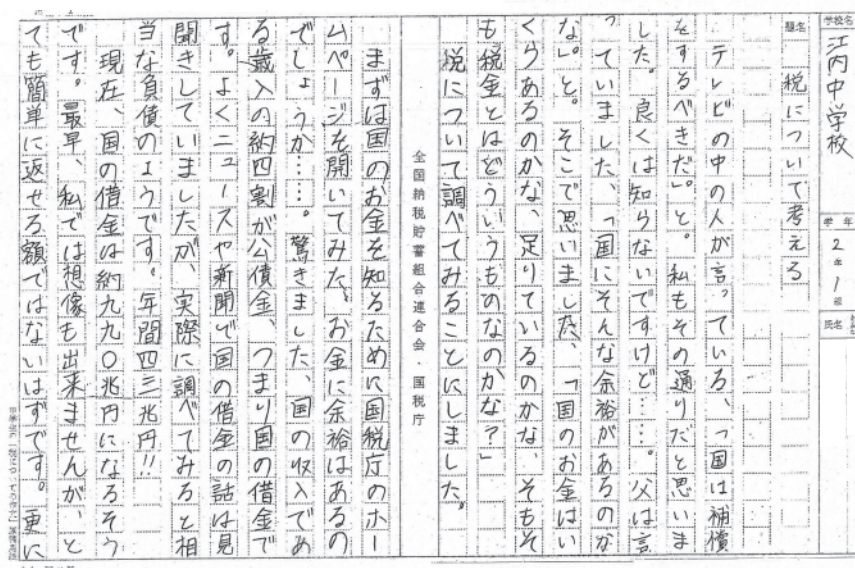 学校名 江内中学校
学年 2年1組
氏名
題名 税について考える
テレビの中の人が言っている、「国は補償
をするべきだ。」と。私もその通りだと思いま
した。良くは知らないですけど……。父は言
っていました、「国にそんな余裕があるのか
な。」と。そこで思いました、「国のお金はい
くらあるのかな、足りているのかな、そもそ
も税金とはどういうものなのかな?」
税について調べてみることにしました。
全国納税貯蓄組合連合会・国税庁
まずは国のお金を知るために国税庁のホー
ムページを開いてみた。お金に余裕はあるの
でしょうか……。驚きました、国の収入であ
る歳入の約四割が公債金、つまり国の借金で
す。よくニュースや新聞で国の借金の話は見
聞きしていましたが、実際に調べてみると相
当な負債のようです。年間四三兆円!!
現在、国の借金は約九九〇兆円になるそう
です。最早、私では想像も出来ませんが、と
ても簡単に返せる額ではないはずです。更に